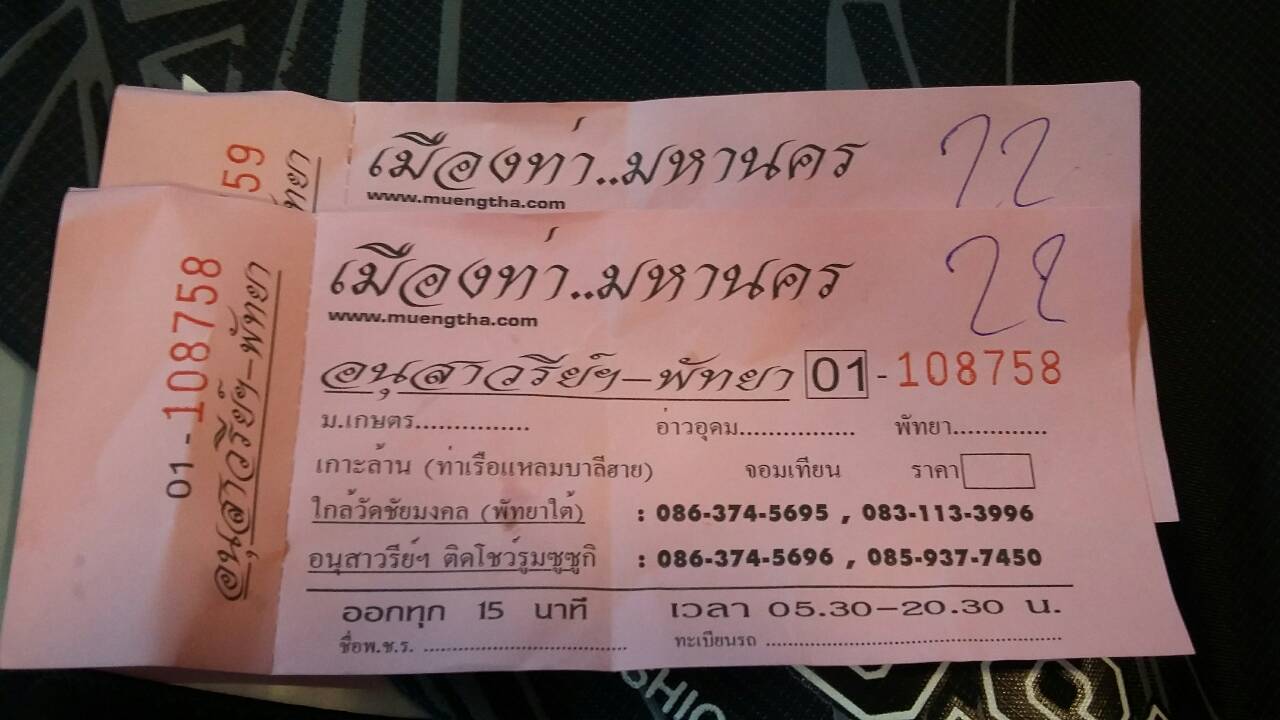 59
เมืองท่า..มหานคร
www.muengtha.com
22
01 - 108758
อนุสาวรีย์ฯ-พัทยา
เมืองท่า..มหานคร
www.muengtha.com
อนุสาวรีย์ฯ-พัทยา 01 - 108758
ม.เกษตร............... อ่าวอุดม............... พัทยา.............
เกาะล้าน (ท่าเรือแหลมบาลีฮาย) จอมเทียน ราคา
ใกล้วัดชัยมงคล (พัทยาใต้) : 086-374-5695 , 083-113-3996
อนุสาวรีย์ฯ ติดโชว์รูมซูซูกิ : 086-374-5696 , 085-937-7450
ออกทุก 15 นาที เวลา 05.30-20.30 น.
ชื่อพ.ช.ร. ................................... ทะเบียนรถ ..................................................